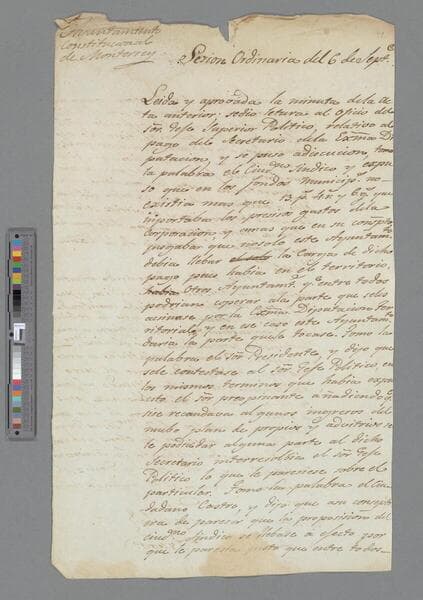 Ayuntamiento
Constitucional
de Monterrey
Sesion Ordinaria del 6 de Septe.
Leida y aprovada la minuta dela ac
ta anterior; sedio letura al Oficio del
Sor. Gefe Superior Politico, relativo al
pago del Secretario dela Exma. Di
putacion, y se puso adiscucion, tomó
la palabra el Ciudno. Sindico y expu
so que en los fondos Municips. no
existia mas que 13 ps. 4 rs. y
importaban los precisos gastos dela
Corporacion, y otras que en su consepto
jusgabar que nosolo este Ayuntamto
debia llebar la Carga de dicho
pago pues habia en el territorio,
otros Ayuntamts. y entre todos
podrian coperar ala parte que seles
acinase por la Exma. Diputacion Ter
ritorial, y en ese caso este Ayuntamto
daria la parte que le tocase. Tomo la
palabra el Sor. Presidente y dijo que
sele contestase al Sor. Gefe Politico, en
los mismos terminos que habia expu
esto el sor. preopinante añadiendo q.
sise recaudaca algunos ingresos del
nuebo plan de propios y advitrios se
le podia dar alguna parte al dicho
Secretario interresolbia el Sor. Gefe
Politico lo que le pareciese sobre el
particular. Tomo la palabra el Ciu
dadano Castro, y dijo que asu consepto
era de parecer que la proposicion del
ciudno. Sindico se llebase a efecto por
que le parecia justo que entre todos